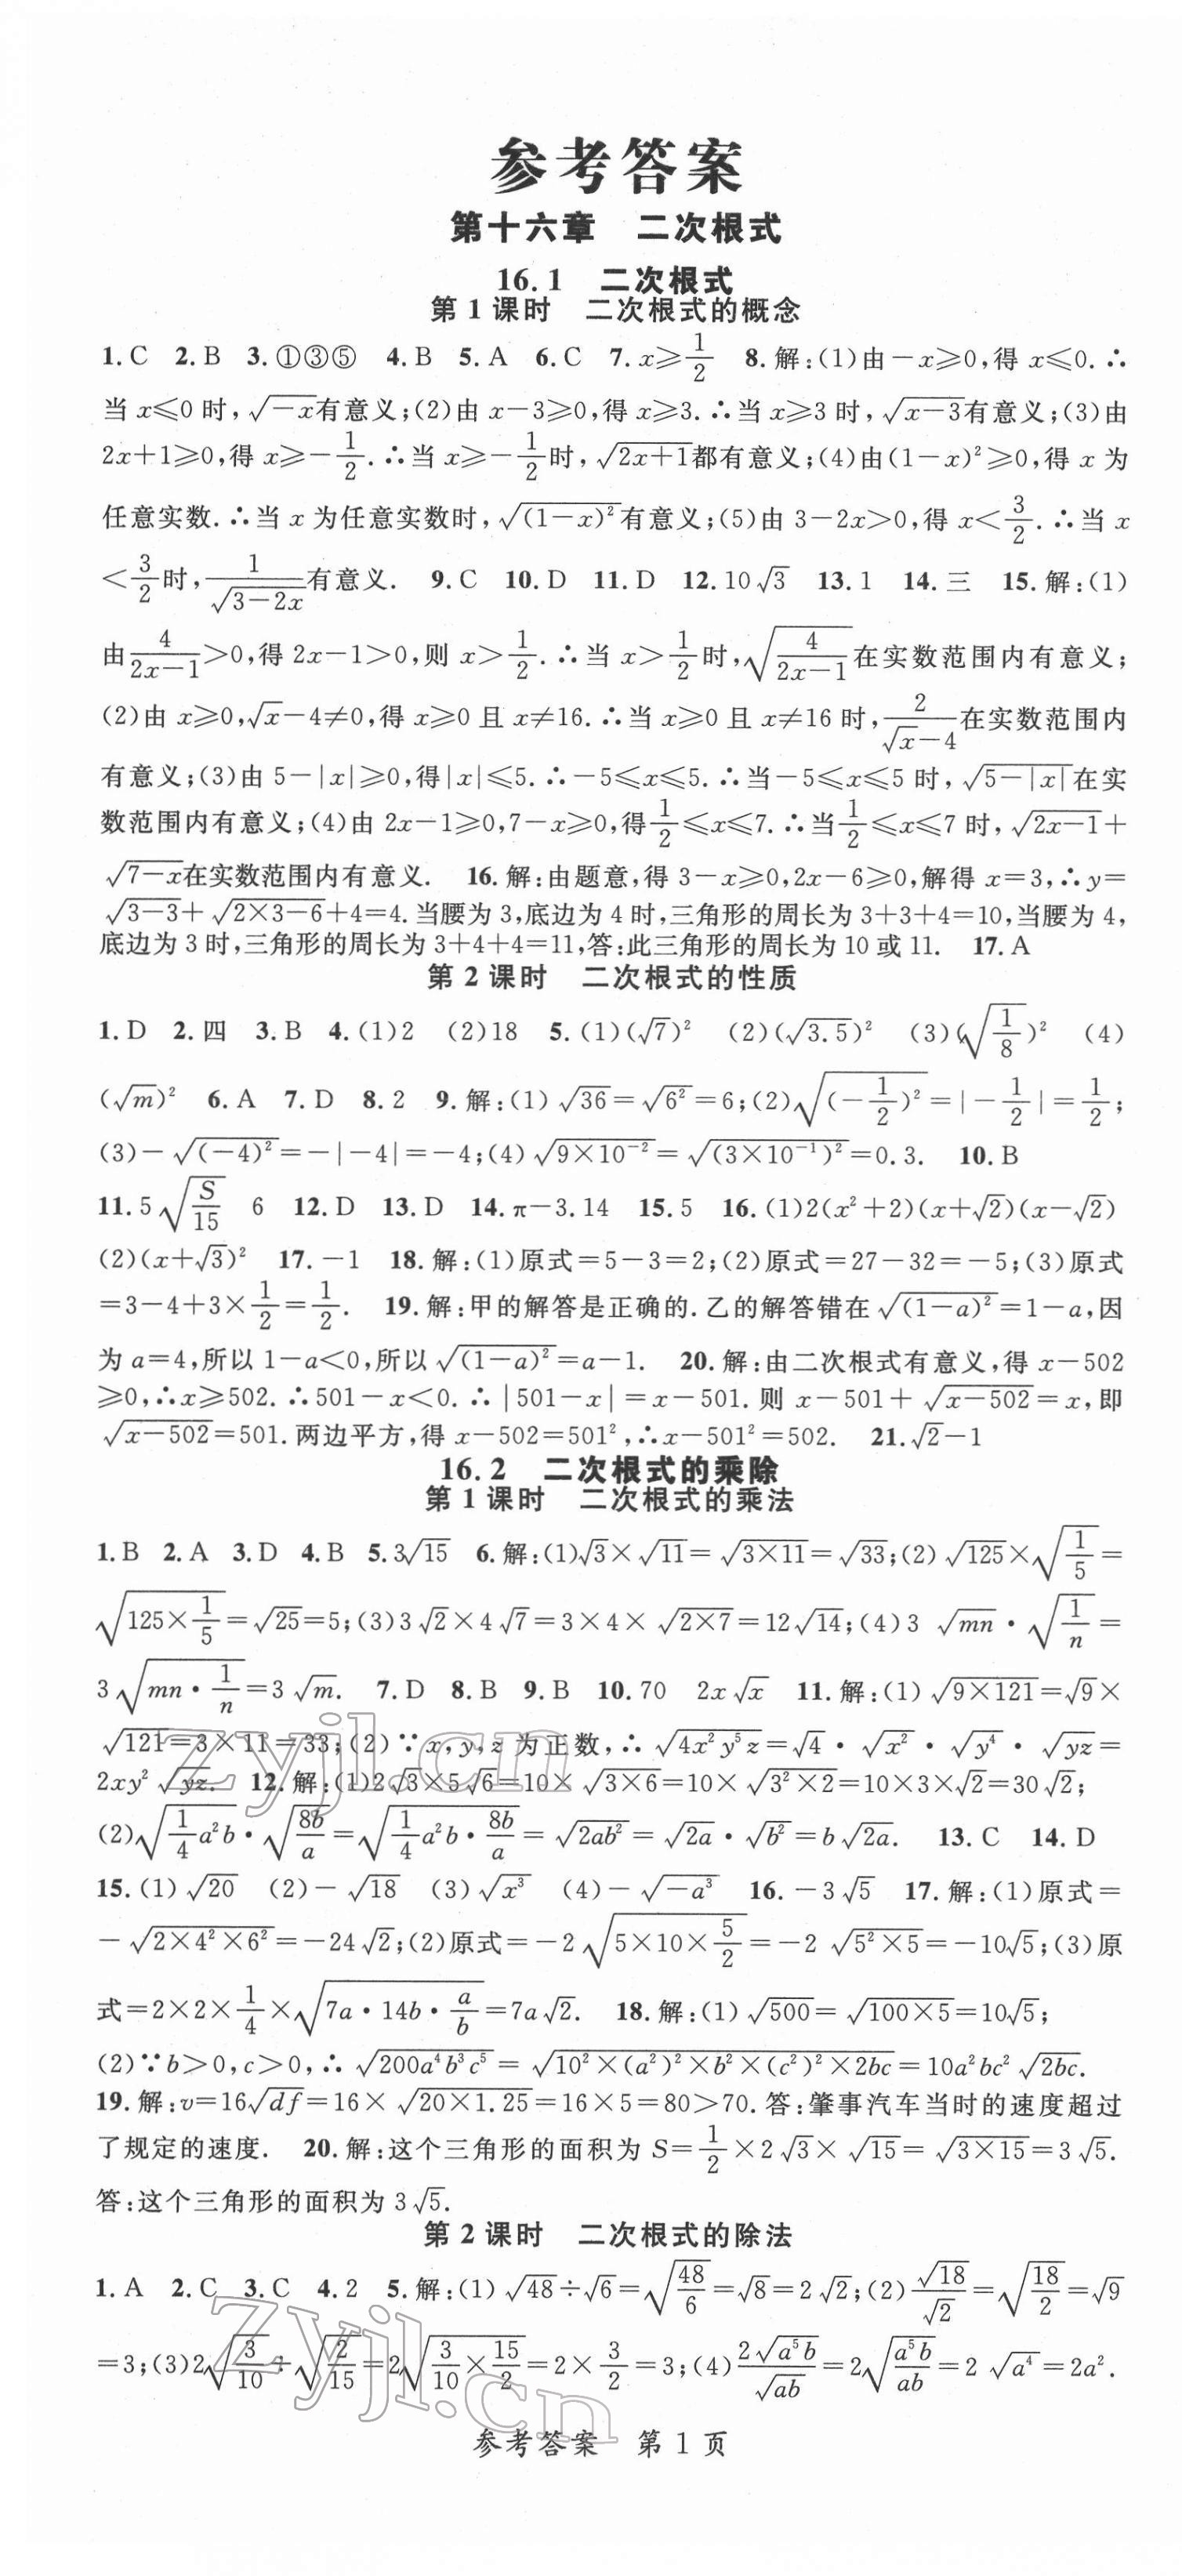 参考答案
第十六章　二次根式
16.1　二次根式
第1课时　二次根式的概念
1.C 2.B 3.①③⑤ 4.B 5.A 6.C 7.x≥1/2 8.解:(1)由－x≥0,得x≤0.∴
当x≤0时,√(－x)有意义;(2)由x－3≥0,得x≥3.∴当x≥3时,√(x－3)有意义;(3)由
2x＋1≥0,得x≥－1/2.∴当x≥－1/2时,√(2x＋1)都有意义;(4)由(1－x)²≥0,得x为
任意实数.∴当x为任意实数时,√((1－x)²)有意义;(5)由3－2x>0,得x<3/2.∴当x
<3/2时,1/√(3－2x)有意义. 9.C 10.D 11.D 12.10√3 13.1 14.三 15.解:(1)
由4/(2x－1)>0,得2x－1>0,则x>1/2.∴当x>1/2时,√(4/(2x－1))在实数范围内有意义;
(2)由x≥0,√x－4≠0,得x≥0且x≠16.∴当x≥0且x≠16时,2/(√x－4)在实数范围内
有意义;(3)由5－|x|≥0,得|x|≤5.∴－5≤x≤5.∴当－5≤x≤5时,√(5－|x|)在实
数范围内有意义;(4)由2x－1≥0,7－x≥0,得1/2≤x≤7.∴当1/2≤x≤7时,√(2x－1)＋
√(7－x)在实数范围内有意义. 16.解:由题意,得3－x≥0,2x－6≥0,解得x＝3,∴y＝
√(3－3)＋√(2×3－6)＋4＝4.当腰为3,底边为4时,三角形的周长为3＋3＋4＝10,当腰为4,
底边为3时,三角形的周长为3＋4＋4＝11,答:此三角形的周长为10或11. 17.A
第2课时　二次根式的性质
1.D 2.四 3.B 4.(1)2 (2)18 5.(1)(√7)² (2)(√3.5)² (3)(√(1/8))² (4)
(√m)² 6.A 7.D 8.2 9.解:(1)√36＝√(6²)＝6;(2)√((－1/2)²)＝|－1/2|＝1/2;
(3)－√((－4)²)＝－|－4|＝－4;(4)√(9×10⁻²)＝√((3×10⁻¹)²)＝0.3. 10.B
11.5√(S/15) 6 12.D 13.D 14.π－3.14 15.5 16.(1)2(x²＋2)(x＋√2)(x－√2)
(2)(x＋√3)² 17.－1 18.解:(1)原式＝5－3＝2;(2)原式＝27－32＝－5;(3)原式
＝3－4＋3×1/2＝1/2. 19.解:甲的解答是正确的.乙的解答错在√((1－a)²)＝1－a,因
为a＝4,所以1－a<0,所以√((1－a)²)＝a－1. 20.解:由二次根式有意义,得x－502
≥0,∴x≥502.∴501－x<0.∴|501－x|＝x－501.则x－501＋√(x－502)＝x,即
√(x－502)＝501.两边平方,得x－502＝501²,∴x－501²＝502. 21.√2－1
16.2　二次根式的乘除
第1课时　二次根式的乘法
1.B 2.A 3.D 4.B 5.3√15 6.解:(1)√3×√11＝√(3×11)＝√33;(2)√125×√(1/5)＝
√(125×1/5)＝√25＝5;(3)3√2×4√7＝3×4×√(2×7)＝12√14;(4)3√(mn)·√(1/n)＝
3√(mn·1/n)＝3√m. 7.D 8.B 9.B 10.70 2x√x 11.解:(1)√(9×121)＝√9×
√121＝3×11＝33;(2)∵x,y,z为正数,∴√(4x²y⁵z)＝√4·√(x²)·√(y⁴)·√(yz)＝
2xy²√(yz). 12.解:(1)2√3×5√6＝10×√(3×6)＝10×√(3²×2)＝10×3×√2＝30√2;
(2)√(1/4a²b)·√(8b/a)＝√(1/4a²b·8b/a)＝√(2ab²)＝√(2a)·√(b²)＝b√(2a). 13.C 14.D
15.(1)√20 (2)－√18 (3)√(x³) (4)－√(－a³) 16.－3√5 17.解:(1)原式＝
－√(2×4²×6²)＝－24√2;(2)原式＝－2√(5×10×5/2)＝－2√(5²×5)＝－10√5;(3)原
式＝2×2×1/4×√(7a·14b·a/b)＝7a√2. 18.解:(1)√500＝√(100×5)＝10√5;
(2)∵b>0,c>0,∴√(200a⁴b³c⁵)＝√(10²×(a²)²×b²×(c²)²×2bc)＝10a²bc²√(2bc).
19.解:v＝16√(df)＝16×√(20×1.25)＝16×5＝80>70.答:肇事汽车当时的速度超过
了规定的速度. 20.解:这个三角形的面积为S＝1/2×2√3×√15＝√(3×15)＝3√5.
答:这个三角形的面积为3√5.
第2课时　二次根式的除法
1.A 2.C 3.C 4.2 5.解:(1)√48÷√6＝√(48/6)＝√8＝2√2;(2)√18/√2＝√(18/2)＝√9
＝3;(3)2√(3/10)÷√(2/15)＝2√(3/10×15/2)＝2×3/2＝3;(4)2√(a⁵b)/√(ab)＝2√(a⁵b/ab)＝2√(a⁴)＝2a².
参考答案　第1页
zyjl.cn
zyjl.cn